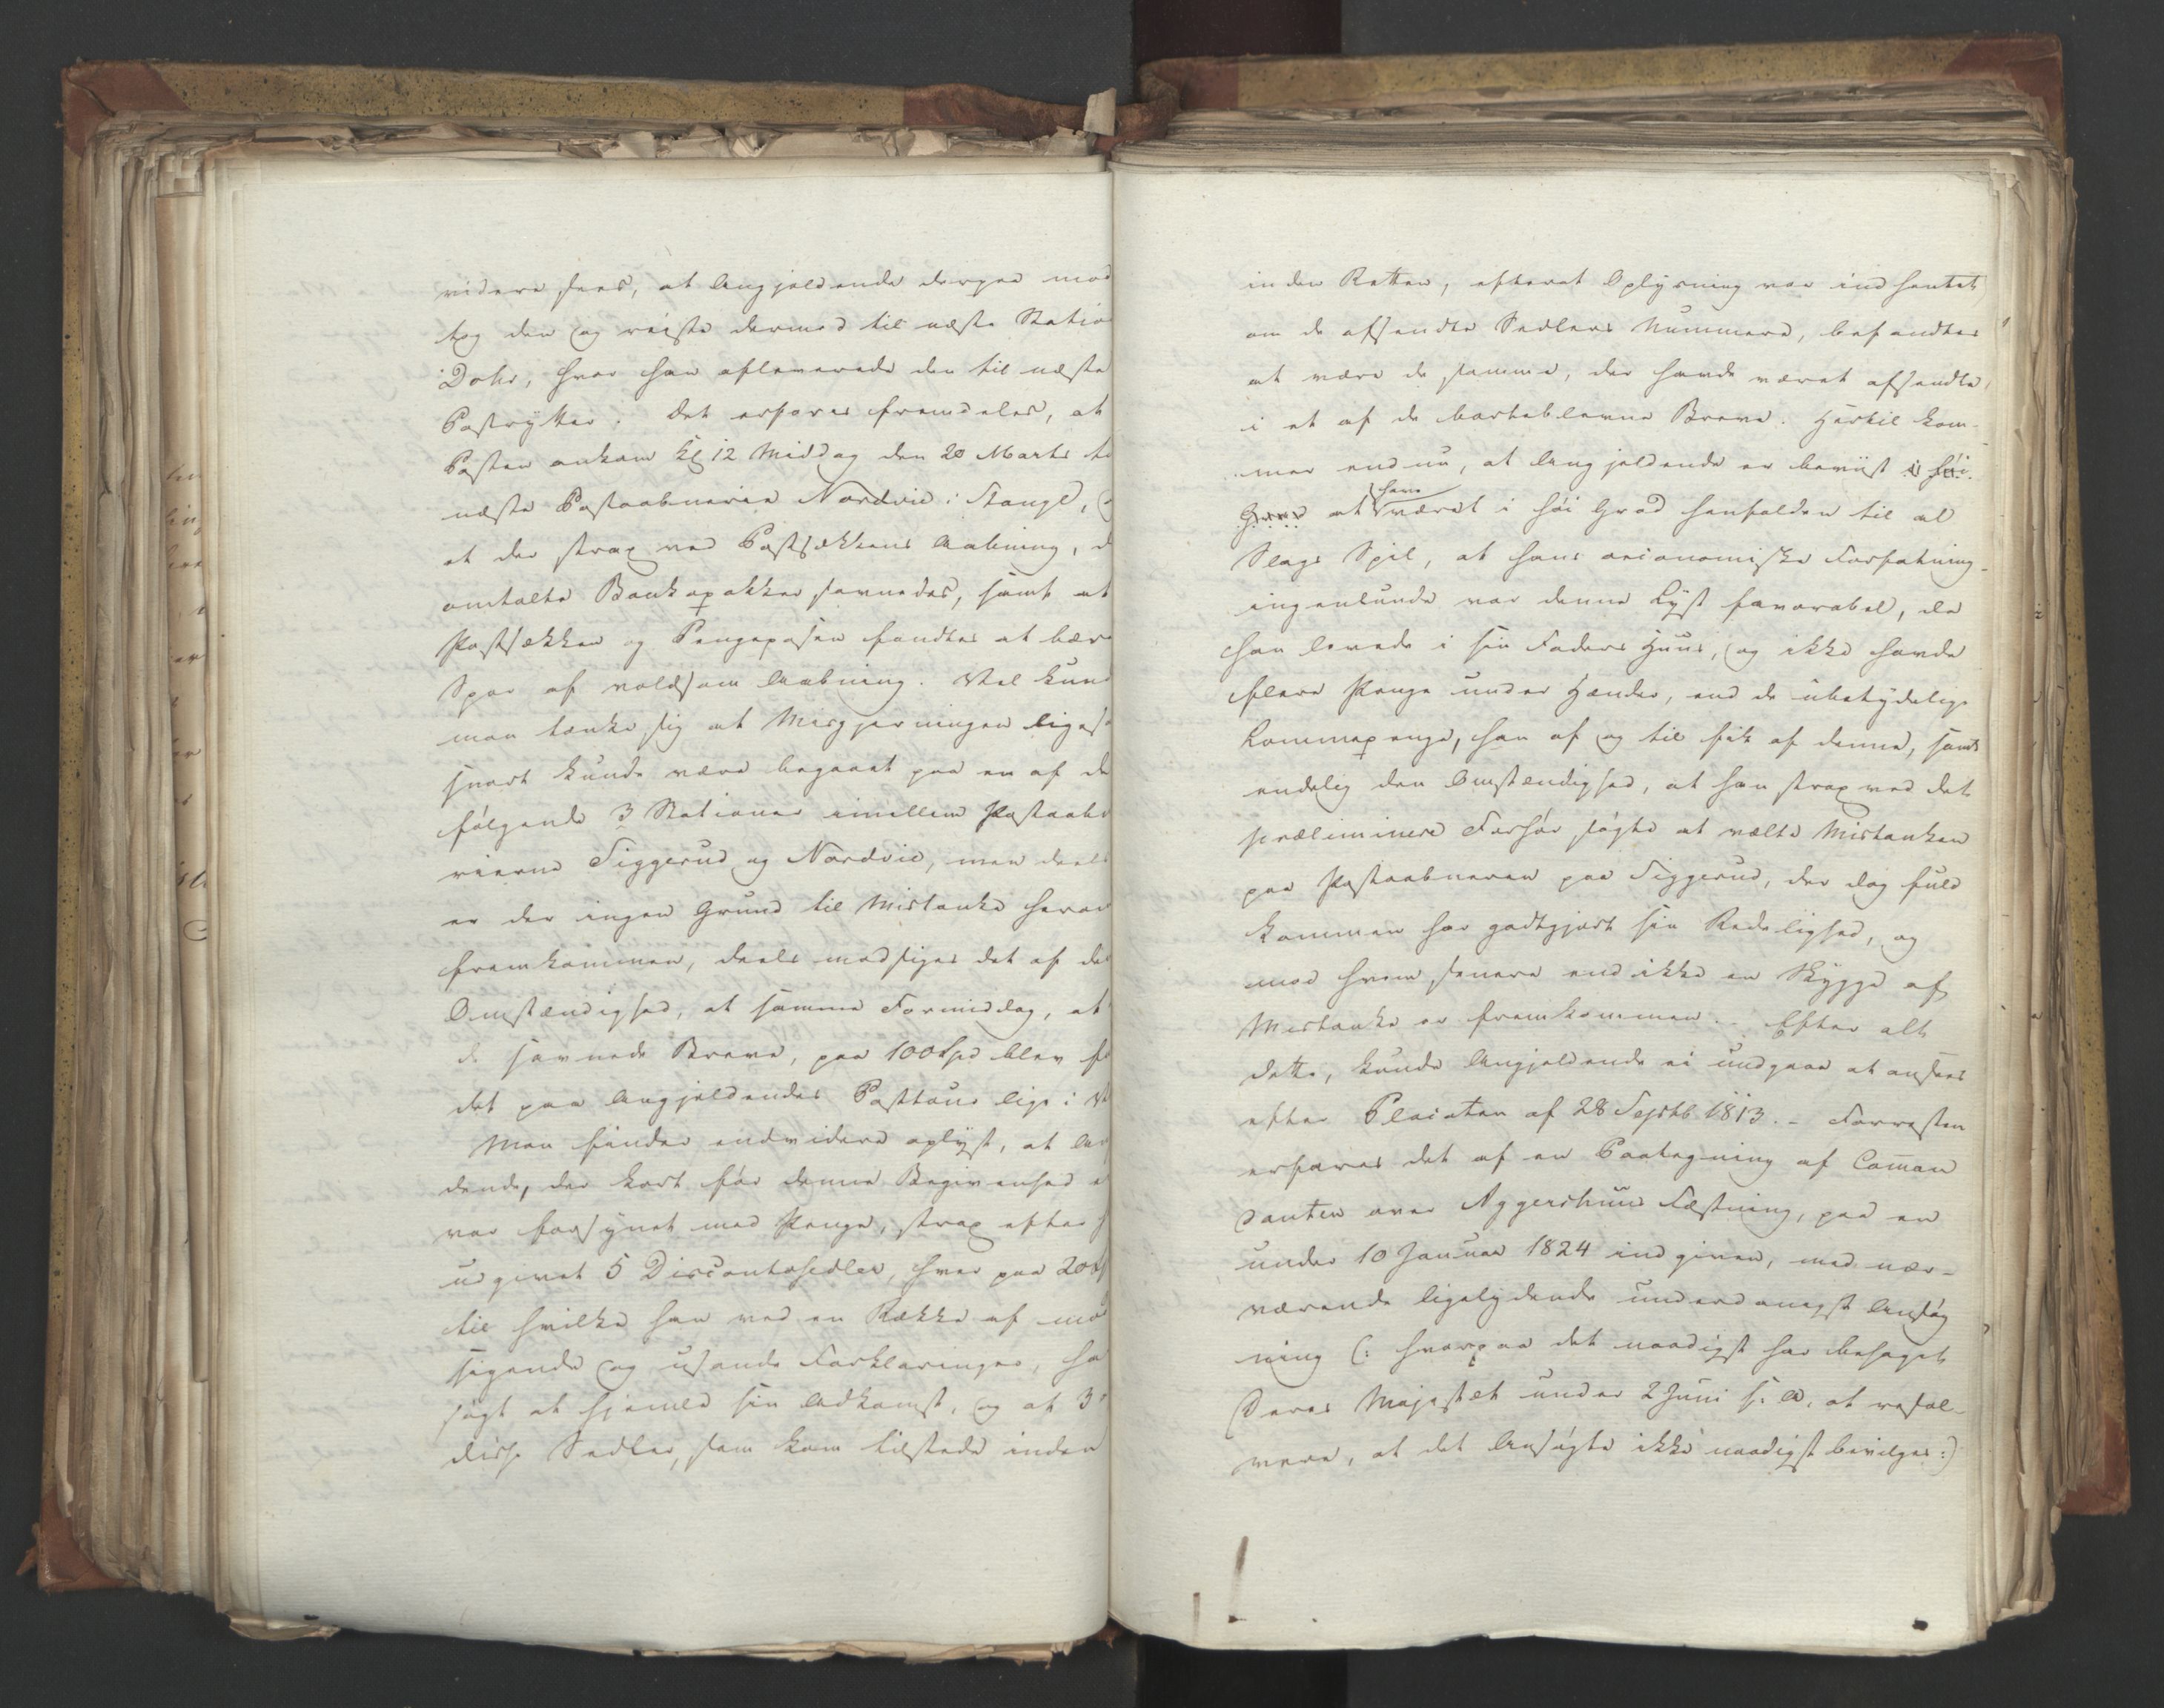 videre sees, at Angjeldende derpaa mod
tog den og reiste dermed til næste Statio
Dohr, hvor han afleverede den til næste
Postrytter. Det erfares fremdeles, at
Posten ankom Kl 12 Middag den 20 Marts ti
næste Postaabnerie Nordvie i Stange, o
at der strax ved Postsækkens Aabning, d
omtalte Bankopakker savnedes, samt at
Postsækken og Pengeposen fandtes at bær
Spor af voldsom Aabning. Vel kund
man tænke sig at Misgjerningen ligesa
snart kunde være begaaet paa en af de
følgende 3 Stationer imellem Postaabn
rierne Siggerud og Nordvie, men deels
er der ingen Grund til Mistanke herom
fremkommen, deels modsiges det af de
Omstændighed, at samme Formiddag, at
de savnede Breve, paa 100 Spd blev fu
det paa Angjeldendes Posttour lige i V
Man finder endvidere oplyst, at An
dende, der kort før denne Begivenhed e
var forsynet med Penge, strax efter h
udgivet 5 Discontosedler, hver paa 20 S
til hvilke han ved en Række af mod
sigende og usande Forklaringer, ha
søgt at hjemle sin Adkomst, og at 3
disse Sedler, som kom tilstede inden
inden Retten, efterat Oplysning var indhentet
om de afsendte Sedlers Nummere, befandtes
at være de samme, der havde været afsendte
i et af de bortblevne Breve. Hertil kom-
mer endnu, at Angjeldende er beviist i høi
Grad at have været i høi Grad henfalden til al
Slags Spil, at hans oeconomiske Forfatning
ingenlunde var denne Lyst favorabel, da
han levede i sin Faders Huus, og ikke havde
flere Penge under Hænder, end de ubetydelige
Lommepenge, han af og til fik af denne, samt
endelig den Omstændighed, at han strax ved det
præliminere Forhør søgte at vælte Mistanken
paa Postaabneren paa Siggerud, der dog fuld
kommen har godtgjort sin Redelighed, og
mod hvem senere end ikke en Skygge af
Mistanke er fremkommen. Efter alt
dette, kunde Angjeldende ei undgaae at ansees
efter Placaten af 28 Septb 1813. - Forresten
erfares det af en Paategning af Comman
danten over Aggershuus Fæstning, paa en
under 10 Januar 1824 indgiven, med nær-
værende ligelydende underdanigst Ansøg
ning (: hvorpaa det naadigst har behaget
Deres Majestæt under 2 Juni s. A. at resol-
vere, at det Ansøgte ikke naadigst bevilges :)